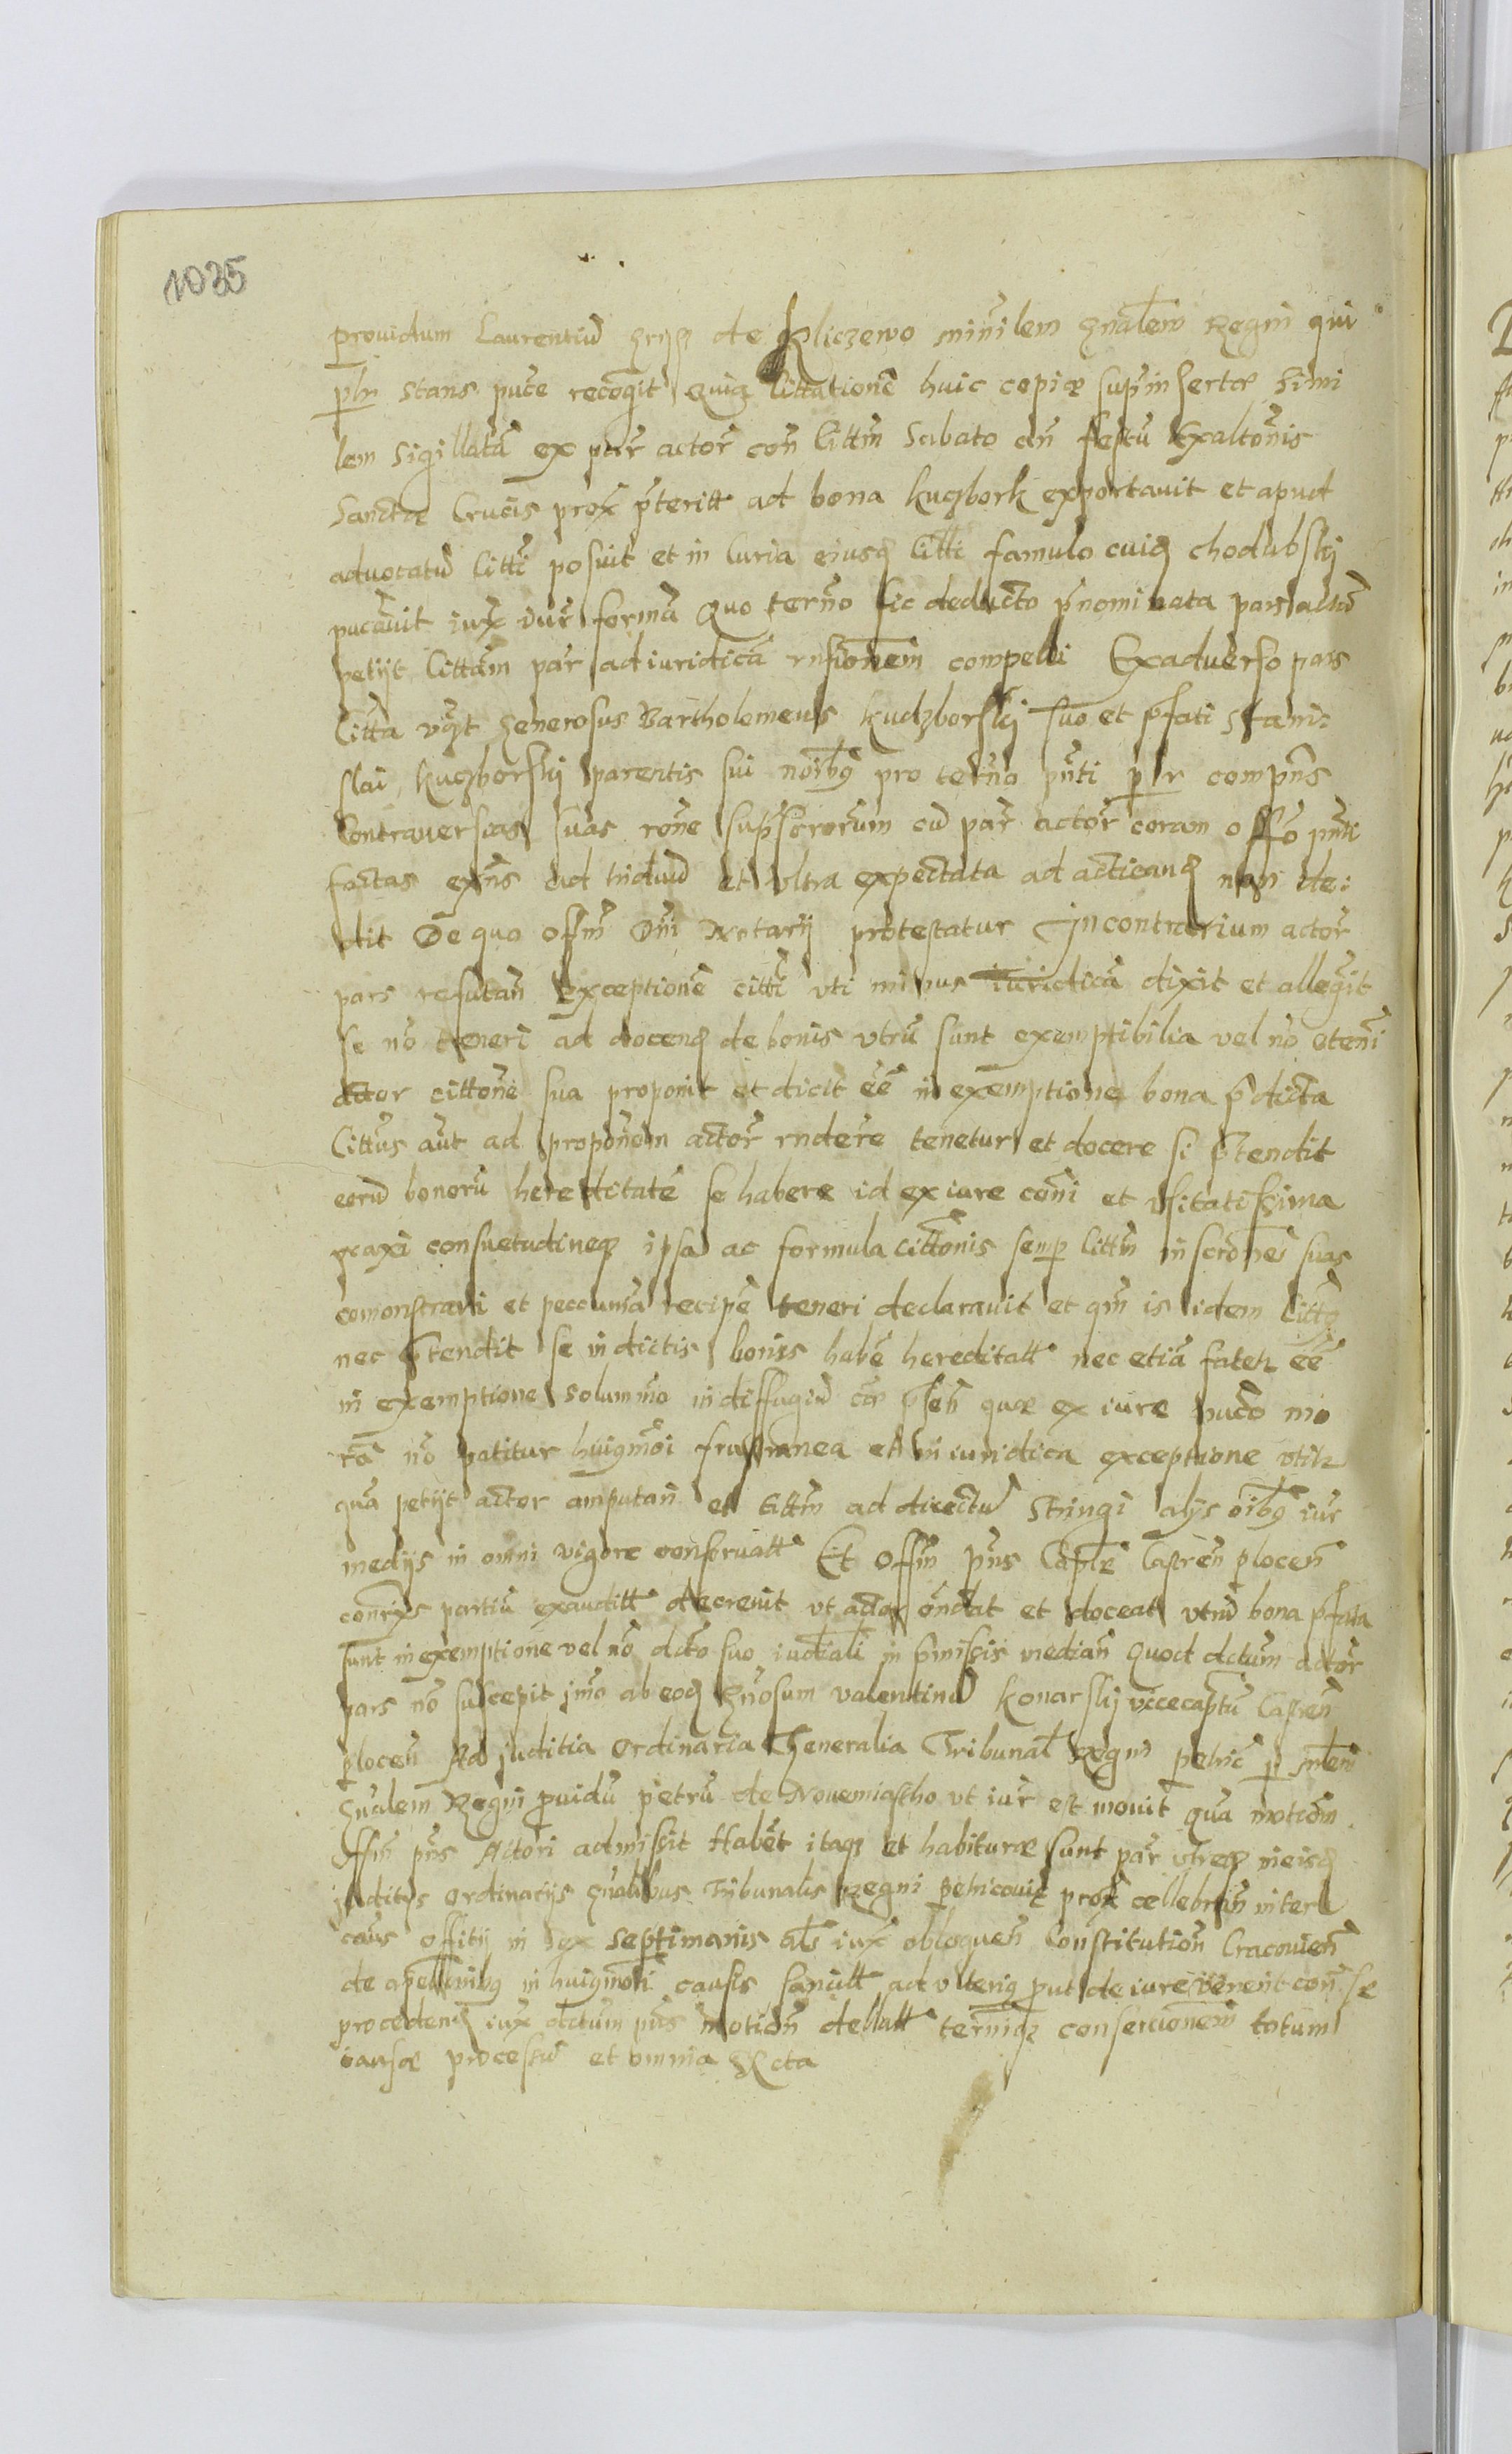 1035
prouidum Laurentiũ de Kliczewo miñilem gñalem Regni qui
plr stans puce recogit Quia cittationẽ huic copiæ supinsertæ simi
lem sigillatã ex par actor con citt̃m Sabato an festũ Exaltoñis
Sanctæ Crucis prox p̃teritt ad bona kuczbork exportauit et apud
aduocatũ citti posuit et in curia eiusd citti famulo cuid chodubskj
pucauit iux iur formã Quo termo sic deducto p̃nominata pars actã
petijt cittãm par ad iuridicã rnsionem compelli Exaduerso pars
Citta vizt generosus Bartholomeus kudzborskj suo et p̃fati Stani:
slai, kuczborskj parentis sui noibus pro termo pñti plr compñs
Contrauersias suas rone supscrorum cũ par actor coram offo pñti
factas expñs ad triduũ et vltra expectata ad acticand non de:
dit De quo offm Dñi Notarij protestatur In contrarium actor
pars refutan exceptionẽ citti vti minus iuridicã dixit et allegauit
se nõ teneri ad docend de bonis vtrũ sunt exemptibilia vel nõ etenĩ
actor cittone sua proponit et dicit eẽ in exemptione bona p̃dicta
Cittus aut ad proponem actor rndere tenetur et docere si p̃tendit
eorũ bonorũ hereditatẽ se habere id ex iure coni et vsitatissima
praxi consuetudineq ipsa ac formula cittonis semp cittm inscrones suas
comonstrari et peccunia recipe teneri declarauit et qm is idem cittus
nec p̃tendit se in dictis bonis habẽ hereditatt nec etiã fatetr eẽ
in exemptione solummo in diffugiũ quæ ex iure mo
rã nõ patitur huigmoi frustranea et in iuridica exceptione vtitr
quã petijt actor amputari et cittm ad directũ stringi alijs oibus iur
medijs in omni vigore conseruatt Et offm pñs Caple Castren plocen
partiũ exauditt decreuit vt actor ondat et doceat vtrũ bona p̃fata
sunt in exemptione vel nõ dcto suo iudciali in p̃missis median Quod dctum actor
pars nõ suscepit imo ab eod Gnosum valentinũ konarskj vicecaptũ Castren
plocen Ad juditia ordinaria Generalia Tribunal Regni petric p mlem
Gnalem Regni puidũ petrũ de Nouomiastho vt iur est mouit quã motiom
Offm pñs Actori admissit Habet itaq et habituræ sunt par vtreq in eisd
juditijs ordinarijs gnalibus Tribunalis Regni petricouiẽ prox cellebran inter
caus offitij in sex septimanis als iux obloquen Constitution Cracouien
de apellonibus in huigmoi causis sancitt ad vlterig put de iure venerit con se
procedend iux dctum pñs motion dellatt termiq conseruonem totum
causæ processũ et omnia Acta